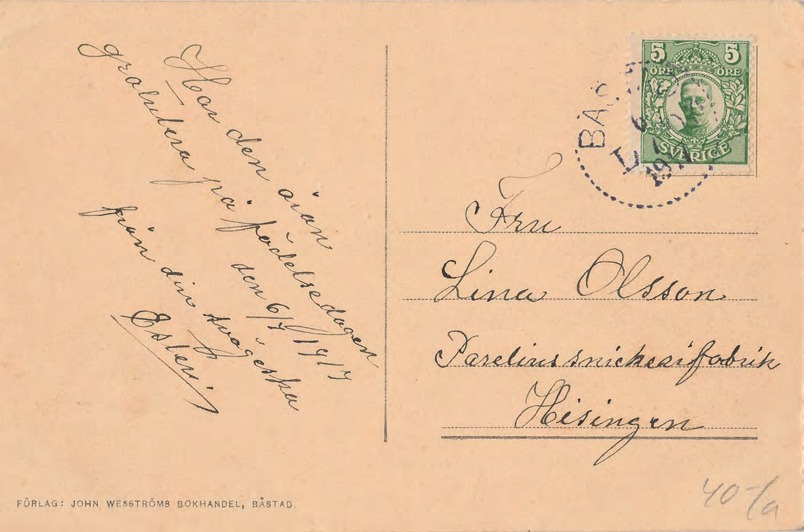 Har den äran
gratulera på födelsedagen
den 6/7 1917
från din svägeska
Ester
5 5
ÖRE ÖRE
SVERIGE
BÅS
6
Fru
Lina Olsson
Parelius snickerifabrik
Hisingen
FÖRLAG: JOHN WESSTRÖMS BOKHANDEL, BÅSTAD.